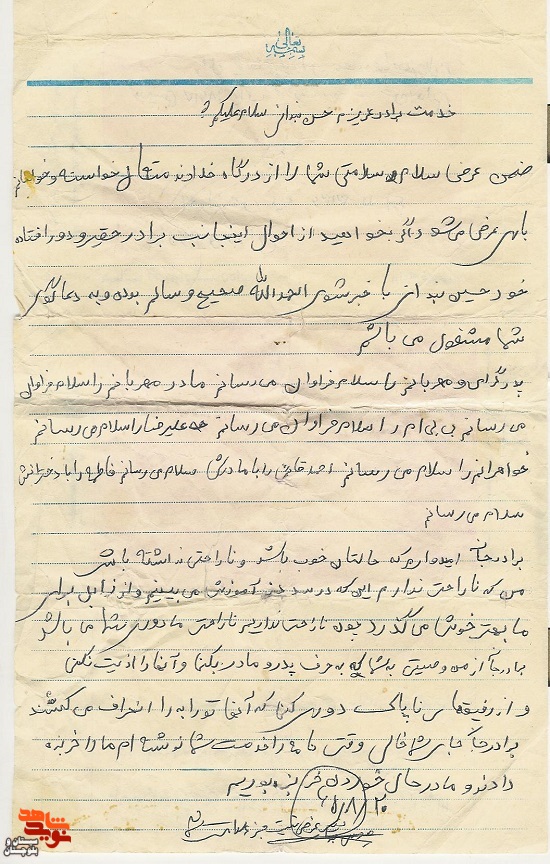 بسمه تعالی
خدمت برادر عزیزم حسن سلام علیکم
ضمن عرض سلام سلامتی شما را از درگاه خداوند متعال خواسته و خواهانم
باری عرض می‌شود اگر بخواهید از احوال اینجانب برادر حقیر و دور افتاده
خود حسین با خبر شوی الحمدالله صحیح و سالم بوده و به دعاگوی
شما مشغول می باشم
پدر گرامی و مهربانم را سلام فراوان می رسانم مادر مهربانم را سلام فراوان
می رسانم بی بی ام را سلام فراوان می رسانم علیرضا را سلام می رسانم
خواهرانم را سلام می رسانم احمد را با مادرش سلام می رسانم فاطمه را با دخترانش
سلام می رسانم
برادرجان امیدوارم که حالتان خوب باشد و ناراحتی نداشته باشی
من که ناراحتی ندارم این که در آموزش می بینم و از زابل برای
ما بهتر خوش می گذرد چون ناراحتی نداریم ناراحتی ما دوری شما می باشد
برادرجان من وصیتی به شما که به حرف پدر و مادر بکنی و آنها را اذیت نکنی
و از رفیقهای ناپاک دوری کنی که آنها تو را به راه انحراف می کشند
برادرجان جای شما خالی وقتی نامه را خدمت شما نوشته ام ما را خربزه
دادند و ما در حال خوردن خربزه بودیم
۶۵/۸/۲۰
شاهد
نوید